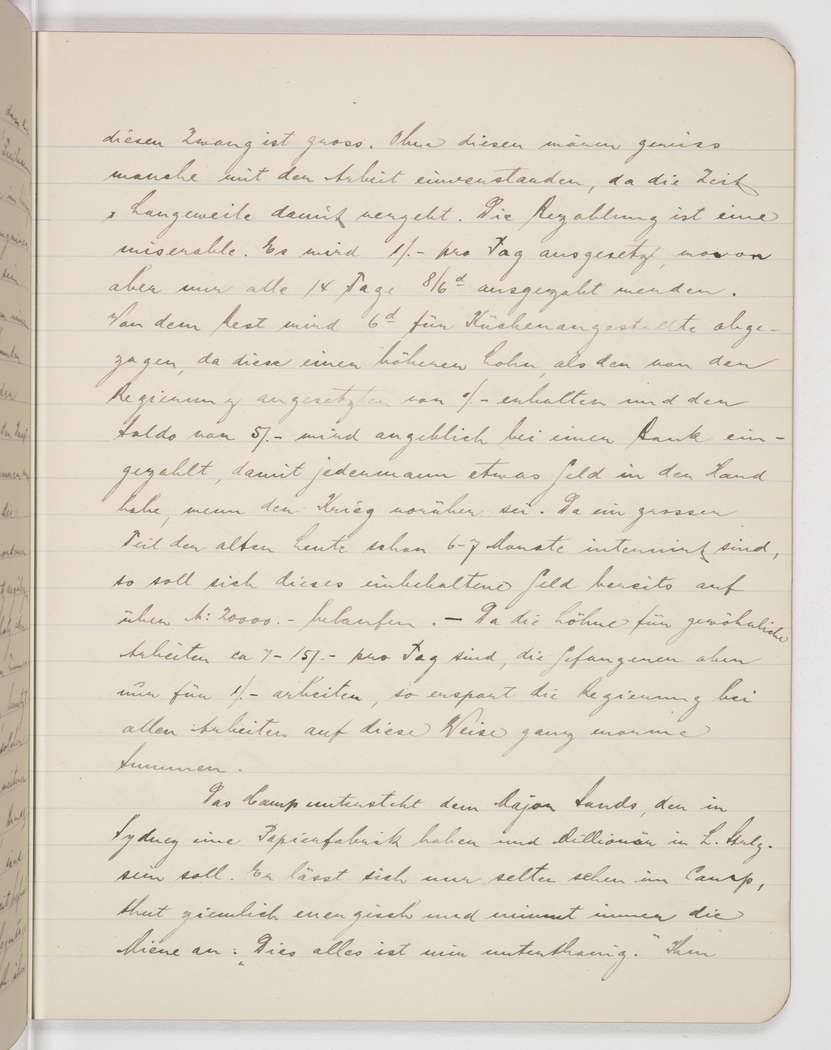 diesen Zwang ist gross. Ohne diesen wären gewiss
manche mit der Arbeit einverstanden, da die Zeit
& Langeweile damit vergeht. Die Bezahlung ist eine
miserable. Es wird 1/- pro Tag ausgesetzt, wovon
aber nur alle 14 Tage 8/6d ausgezahlt werden.
Von dem Rest wird 6d für Küchenangestellte abge-
zogen, da diese einen höheren Lohn, als den von der
Regierung angesetzten von 1/- erhalten und der
Saldo von 5/- wird angeblich bei einer Bank ein-
gezahlt, damit jedermann etwas Geld in der Hand
habe, wenn der Krieg vorüber sei. Da ein grosser
Teil der alten Leute schon 6-7 Monate interniert sind,
so soll sich dieses einbehaltene Geld bereits auf
über 20000.- belaufen. — Da die Löhne für gewöhnliche
Arbeiten ca 7-15/- pro Tag sind, die Gefangenen aber
nur für 1/- arbeiten, so erspart die Regierung bei
allen Arbeiten auf diese Weise ganz enorme
Summen.
Das Camp untersteht dem Major Sands, der in
Sydney eine Papierfabrik haben und Millionär in L. Strlg.
sein soll. Er lässt sich nur selten sehen im Camp,
thut ziemlich energisch und nimmt immer die
Miene an: „Dies alles ist mir unterthanig." Ihm